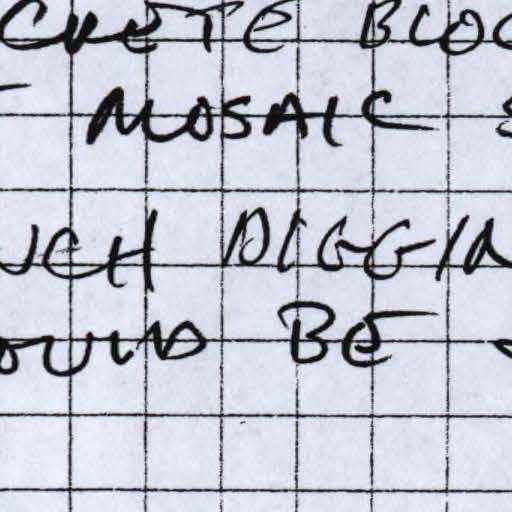 CRETE BLOC
MOSAIC S
UCH DIGGIN
OULD BE